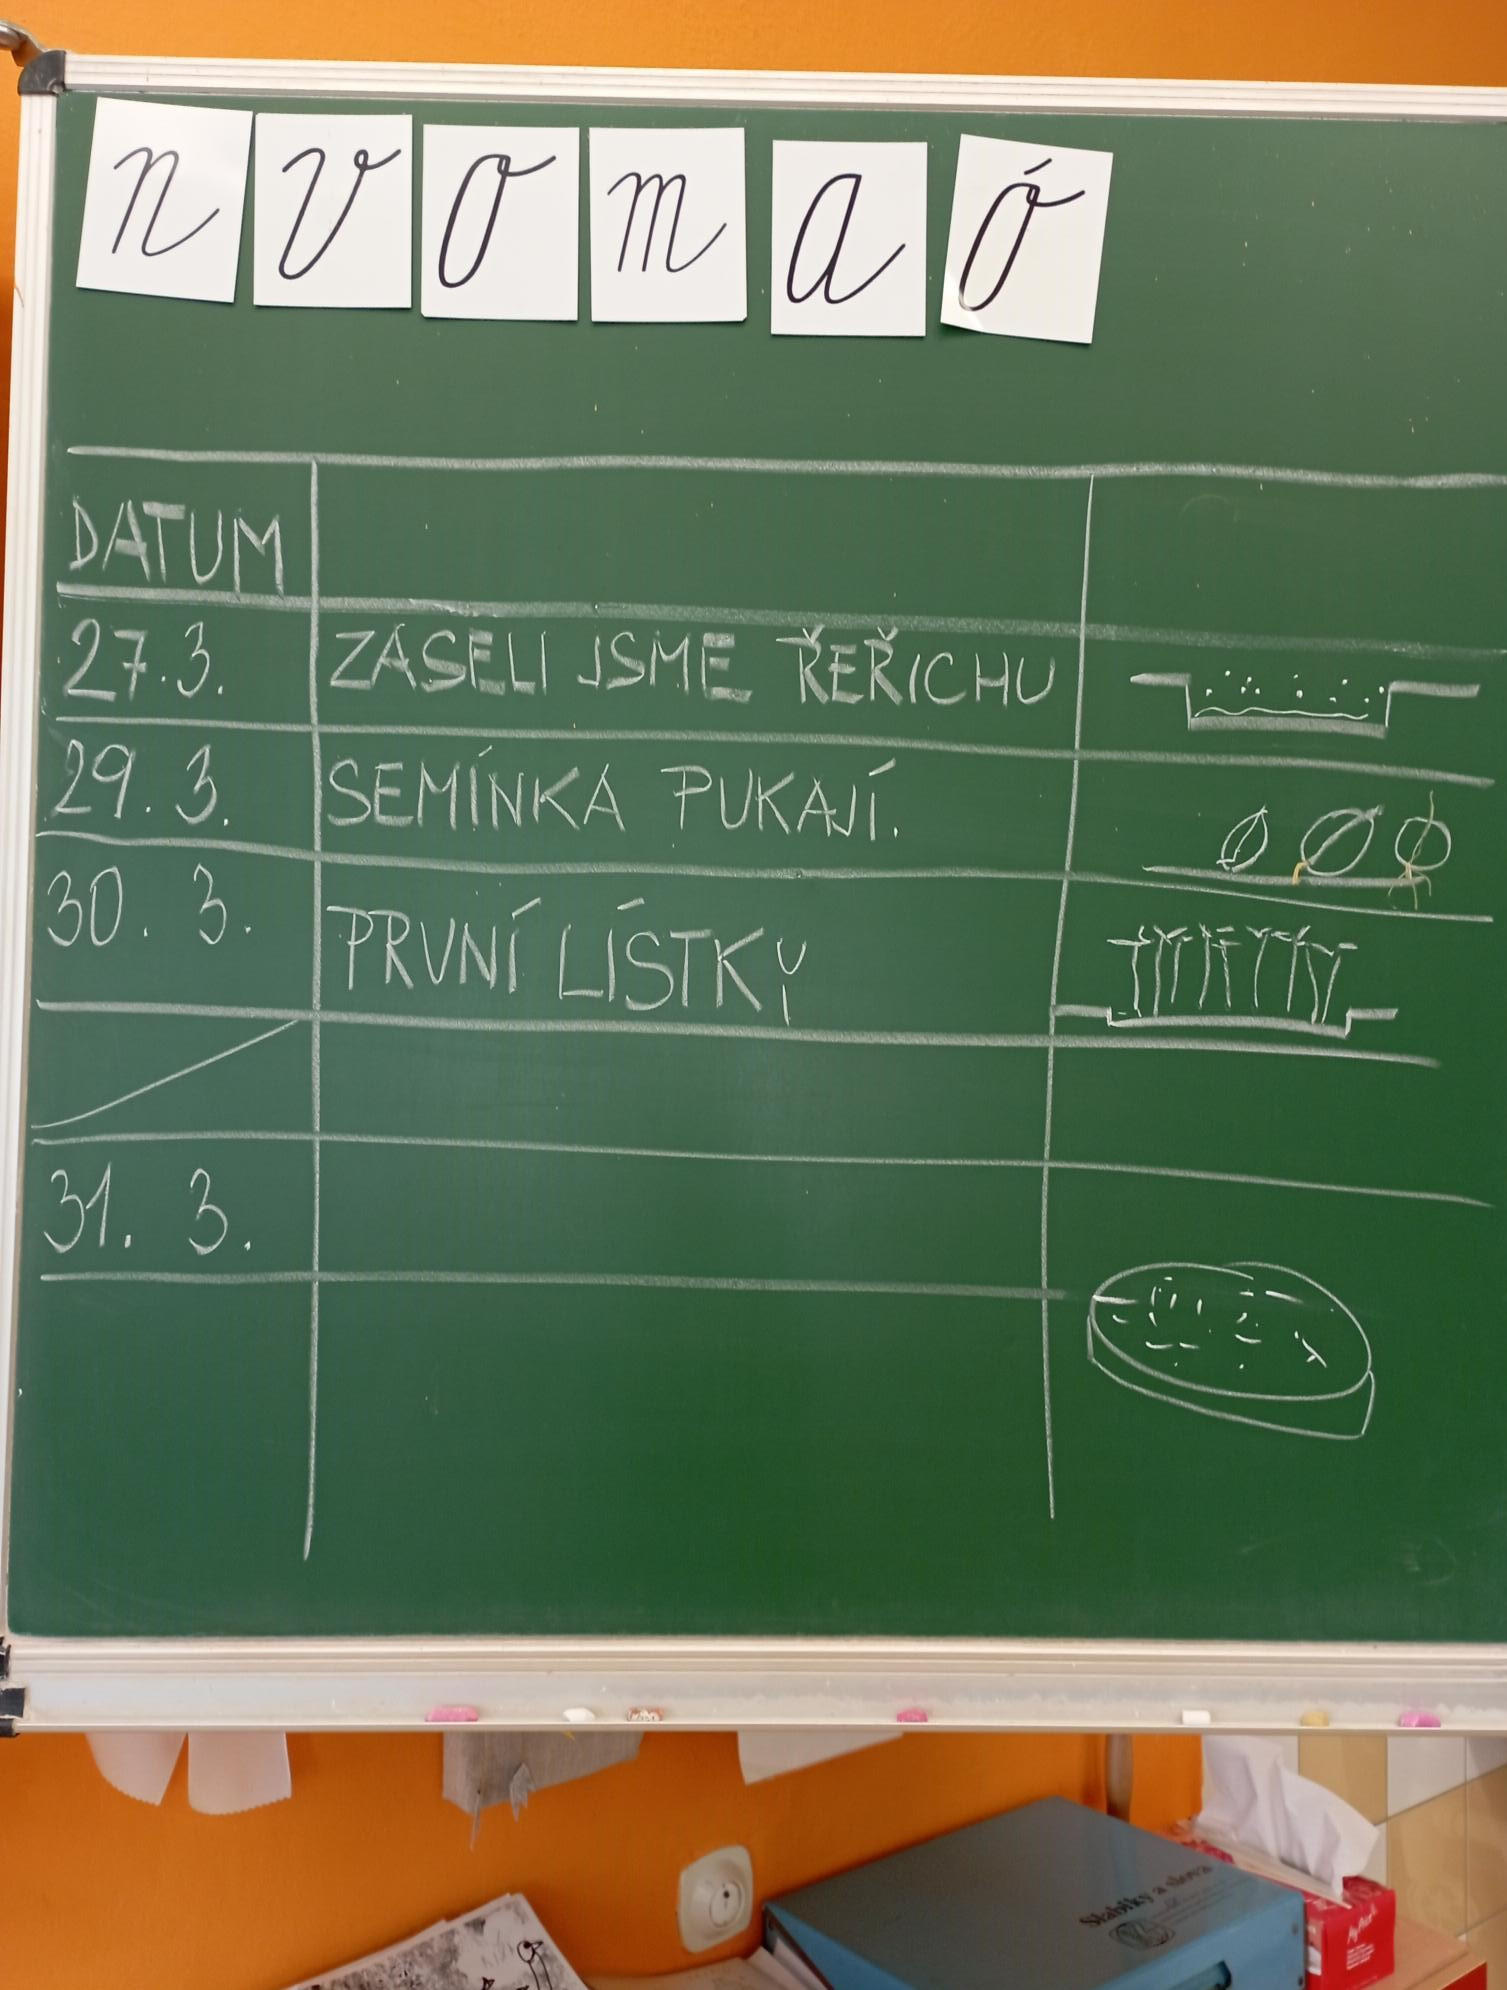 n v o m a ó
DATUM
27.3. ZASELI JSME ŘEŘICHU
29. 3. SEMÍNKA PUKAJÍ.
30. 3. PRVNÍ LÍSTKY
31. 3.
Slabiky a slova